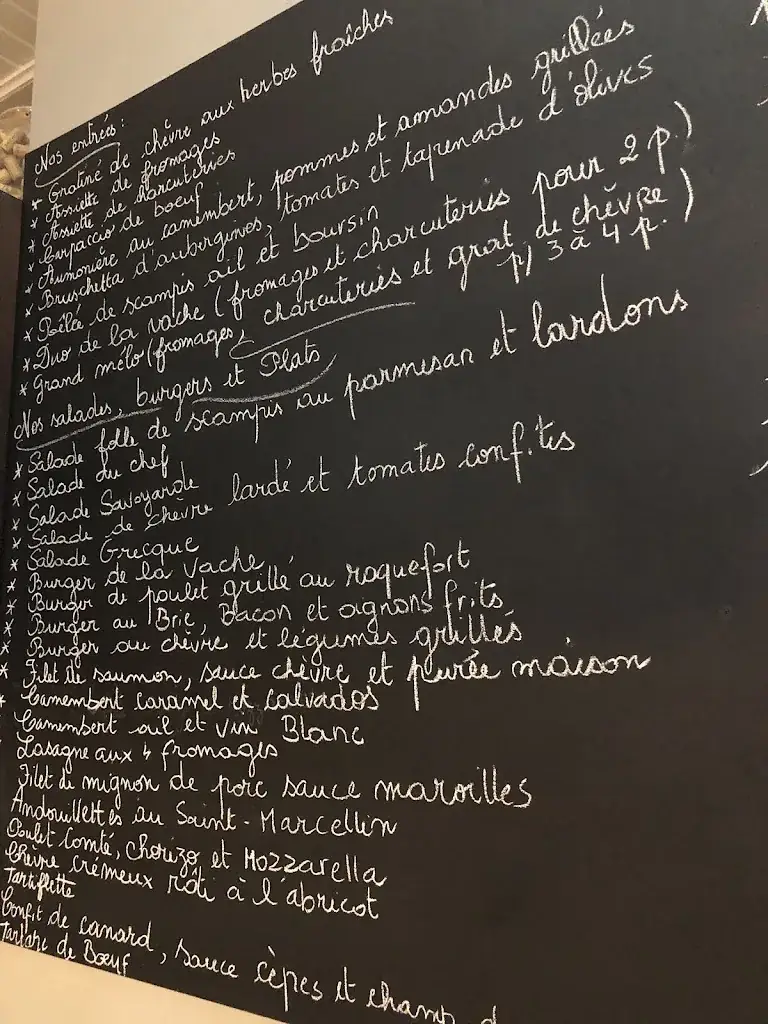 Nos entrées :
* Gratiné de chèvre aux herbes fraîches
* Assiette de fromages
* Assiette de charcuteries
* Carpaccio de boeuf
* Aumonière au camembert, pommes et amandes grillées
* Bruschetta d'aubergines, tomates et tapenade d'olives
* Poêlée de scampis ail et boursin
* Duo de la vache (fromages et charcuteries pour 2 p.)
* Grand mélo (fromages, charcuteries et grat. de chèvre
p/ 3 à 4 p.)
Nos salades, burgers et Plats
* Salade folle de scampis au parmesan et lardons
* Salade du chef
* Salade Savoyarde
* Salade de chèvre lardé et tomates confites
* Salade Grecque
* Burger de la vache
* Burger de poulet grillé au roquefort
* Burger au Brie, Bacon et oignons frits
* Burger au chèvre et légumes grillés
* Filet de saumon, sauce chèvre et purée maison
* Camembert caramel et calvados
Camembert ail et vin Blanc
Lasagne aux 4 fromages
Filet de mignon de porc sauce maroilles
Andouillettes au Saint-Marcellin
Poulet Comté, chorizo et Mozzarella
Chèvre crémeux rôti à l'abricot
Tartiflette
Confit de canard, sauce cèpes et champ
Tartare de Boeuf